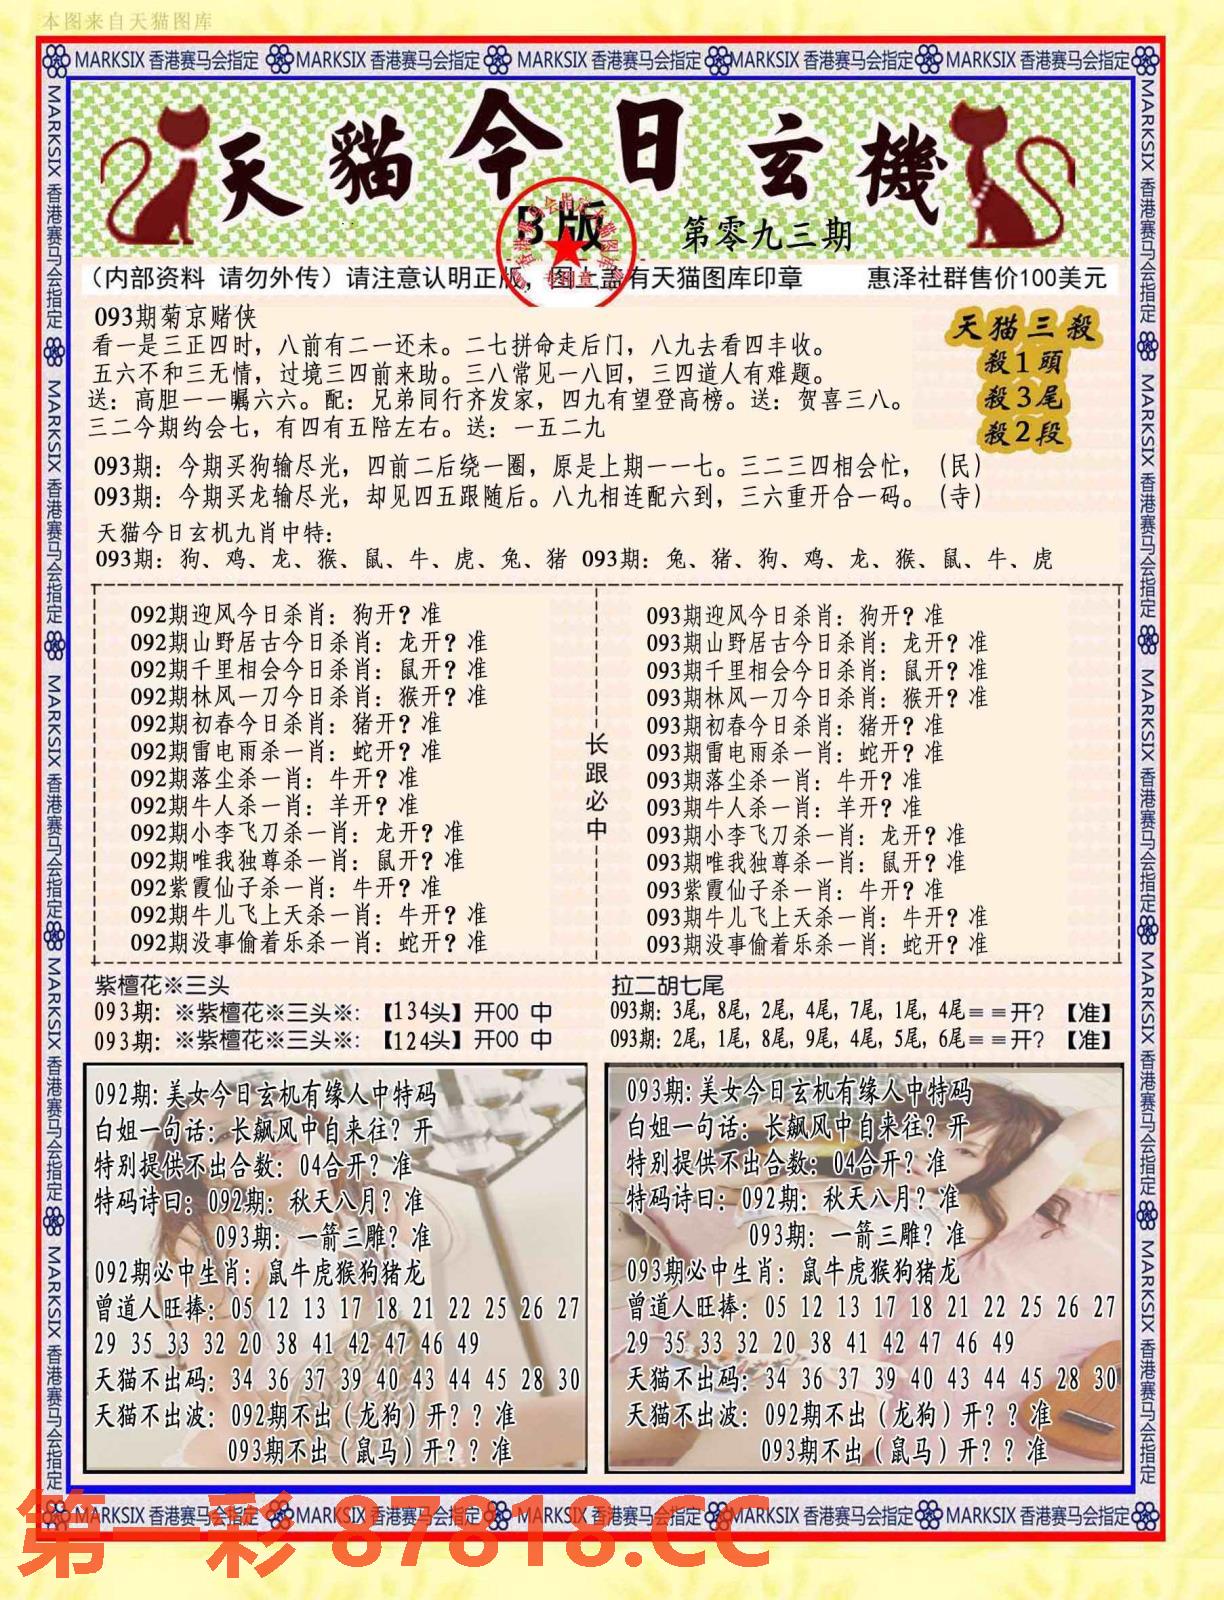 本图来自天猫图库
MARKSIX 香港赛马会指定 MARKSIX 香港赛马会指定 MARKSIX 香港赛马会指定 MARKSIX 香港赛马会指定 MARKSIX 香港赛马会指定
天貓今日玄機
B版
第零九三期
(内部资料 请勿外传)请注意认明正版,图上盖有天猫图库印章 惠泽社群售价100美元
093期菊京赌侠
看一是三正四时,八前有二一还未。二七拼命走后门,八九去看四丰收。
五六不和三无情,过境三四前来助。三八常见一八回,三四道人有难题。
送:高胆一一瞩六六。配:兄弟同行齐发家,四九有望登高榜。送:贺喜三八。
三二今期约会七,有四有五陪左右。送:一五二九
天猫三殺
殺1頭
殺3尾
殺2段
093期:今期买狗输尽光,四前二后绕一圈,原是上期一一七。三二三四相会忙,(民)
093期:今期买龙输尽光,却见四五跟随后。八九相连配六到,三六重开合一码。(寺)
天猫今日玄机九肖中特:
093期:狗、鸡、龙、猴、鼠、牛、虎、兔、猪 093期:兔、猪、狗、鸡、龙、猴、鼠、牛、虎
092期迎风今日杀肖:狗开?准
092期山野居古今日杀肖:龙开?准
092期千里相会今日杀肖:鼠开?准
092期林风一刀今日杀肖:猴开?准
092期初春今日杀肖:猪开?准
092期雷电雨杀一肖:蛇开?准
092期落尘杀一肖:牛开?准
092期牛人杀一肖:羊开?准
092期小李飞刀杀一肖:龙开?准
092期唯我独尊杀一肖:鼠开?准
092紫霞仙子杀一肖:牛开?准
092期牛儿飞上天杀一肖:牛开?准
092期没事偷着乐杀一肖:蛇开?准
长跟必中
093期迎风今日杀肖:狗开?准
093期山野居古今日杀肖:龙开?准
093期千里相会今日杀肖:鼠开?准
093期林风一刀今日杀肖:猴开?准
093期初春今日杀肖:猪开?准
093期雷电雨杀一肖:蛇开?准
093期落尘杀一肖:牛开?准
093期牛人杀一肖:羊开?准
093期小李飞刀杀一肖:龙开?准
093期唯我独尊杀一肖:鼠开?准
093紫霞仙子杀一肖:牛开?准
093期牛儿飞上天杀一肖:牛开?准
093期没事偷着乐杀一肖:蛇开?准
紫檀花※三头
093期:※紫檀花※三头※:【134头】开00 中
093期:※紫檀花※三头※:【124头】开00 中
拉二胡七尾
093期:3尾,8尾,2尾,4尾,7尾,1尾,4尾==开?【准】
093期:2尾,1尾,8尾,9尾,4尾,5尾,6尾==开?【准】
092期:美女今日玄机有缘人中特码
白姐一句话:长飙风中自来往?开
特别提供不出合数:04合开?准
特码诗曰:092期:秋天八月?准
093期:一箭三雕?准
092期必中生肖:鼠牛虎猴狗猪龙
曾道人旺捧:05 12 13 17 18 21 22 25 26 27
29 35 33 32 20 38 41 42 47 46 49
天猫不出码:34 36 37 39 40 43 44 45 28 30
天猫不出波:092期不出(龙狗)开??准
093期不出(鼠马)开??准
093期:美女今日玄机有缘人中特码
白姐一句话:长飙风中自来往?开
特别提供不出合数:04合开?准
特码诗曰:092期:秋天八月?准
093期:一箭三雕?准
093期必中生肖:鼠牛虎猴狗猪龙
曾道人旺捧:05 12 13 17 18 21 22 25 26 27
29 35 33 32 20 38 41 42 47 46 49
天猫不出码:34 36 37 39 40 43 44 45 28 30
天猫不出波:092期不出(龙狗)开??准
093期不出(鼠马)开??准
MARKSIX 香港赛马会指定 MARKSIX 香港赛马会指定 MARKSIX 香港赛马会指定 MARKSIX 香港赛马会指定 MARKSIX 香港赛马会指定
第一彩 87818.CC
MARKSIX 香港赛马会指定 MARKSIX 香港赛马会指定 MARKSIX 香港赛马会指定 MARKSIX 香港赛马会指定 MARKSIX 香港赛马会指定
MARKSIX 香港赛马会指定 MARKSIX 香港赛马会指定 MARKSIX 香港赛马会指定 MARKSIX 香港赛马会指定 MARKSIX 香港赛马会指定